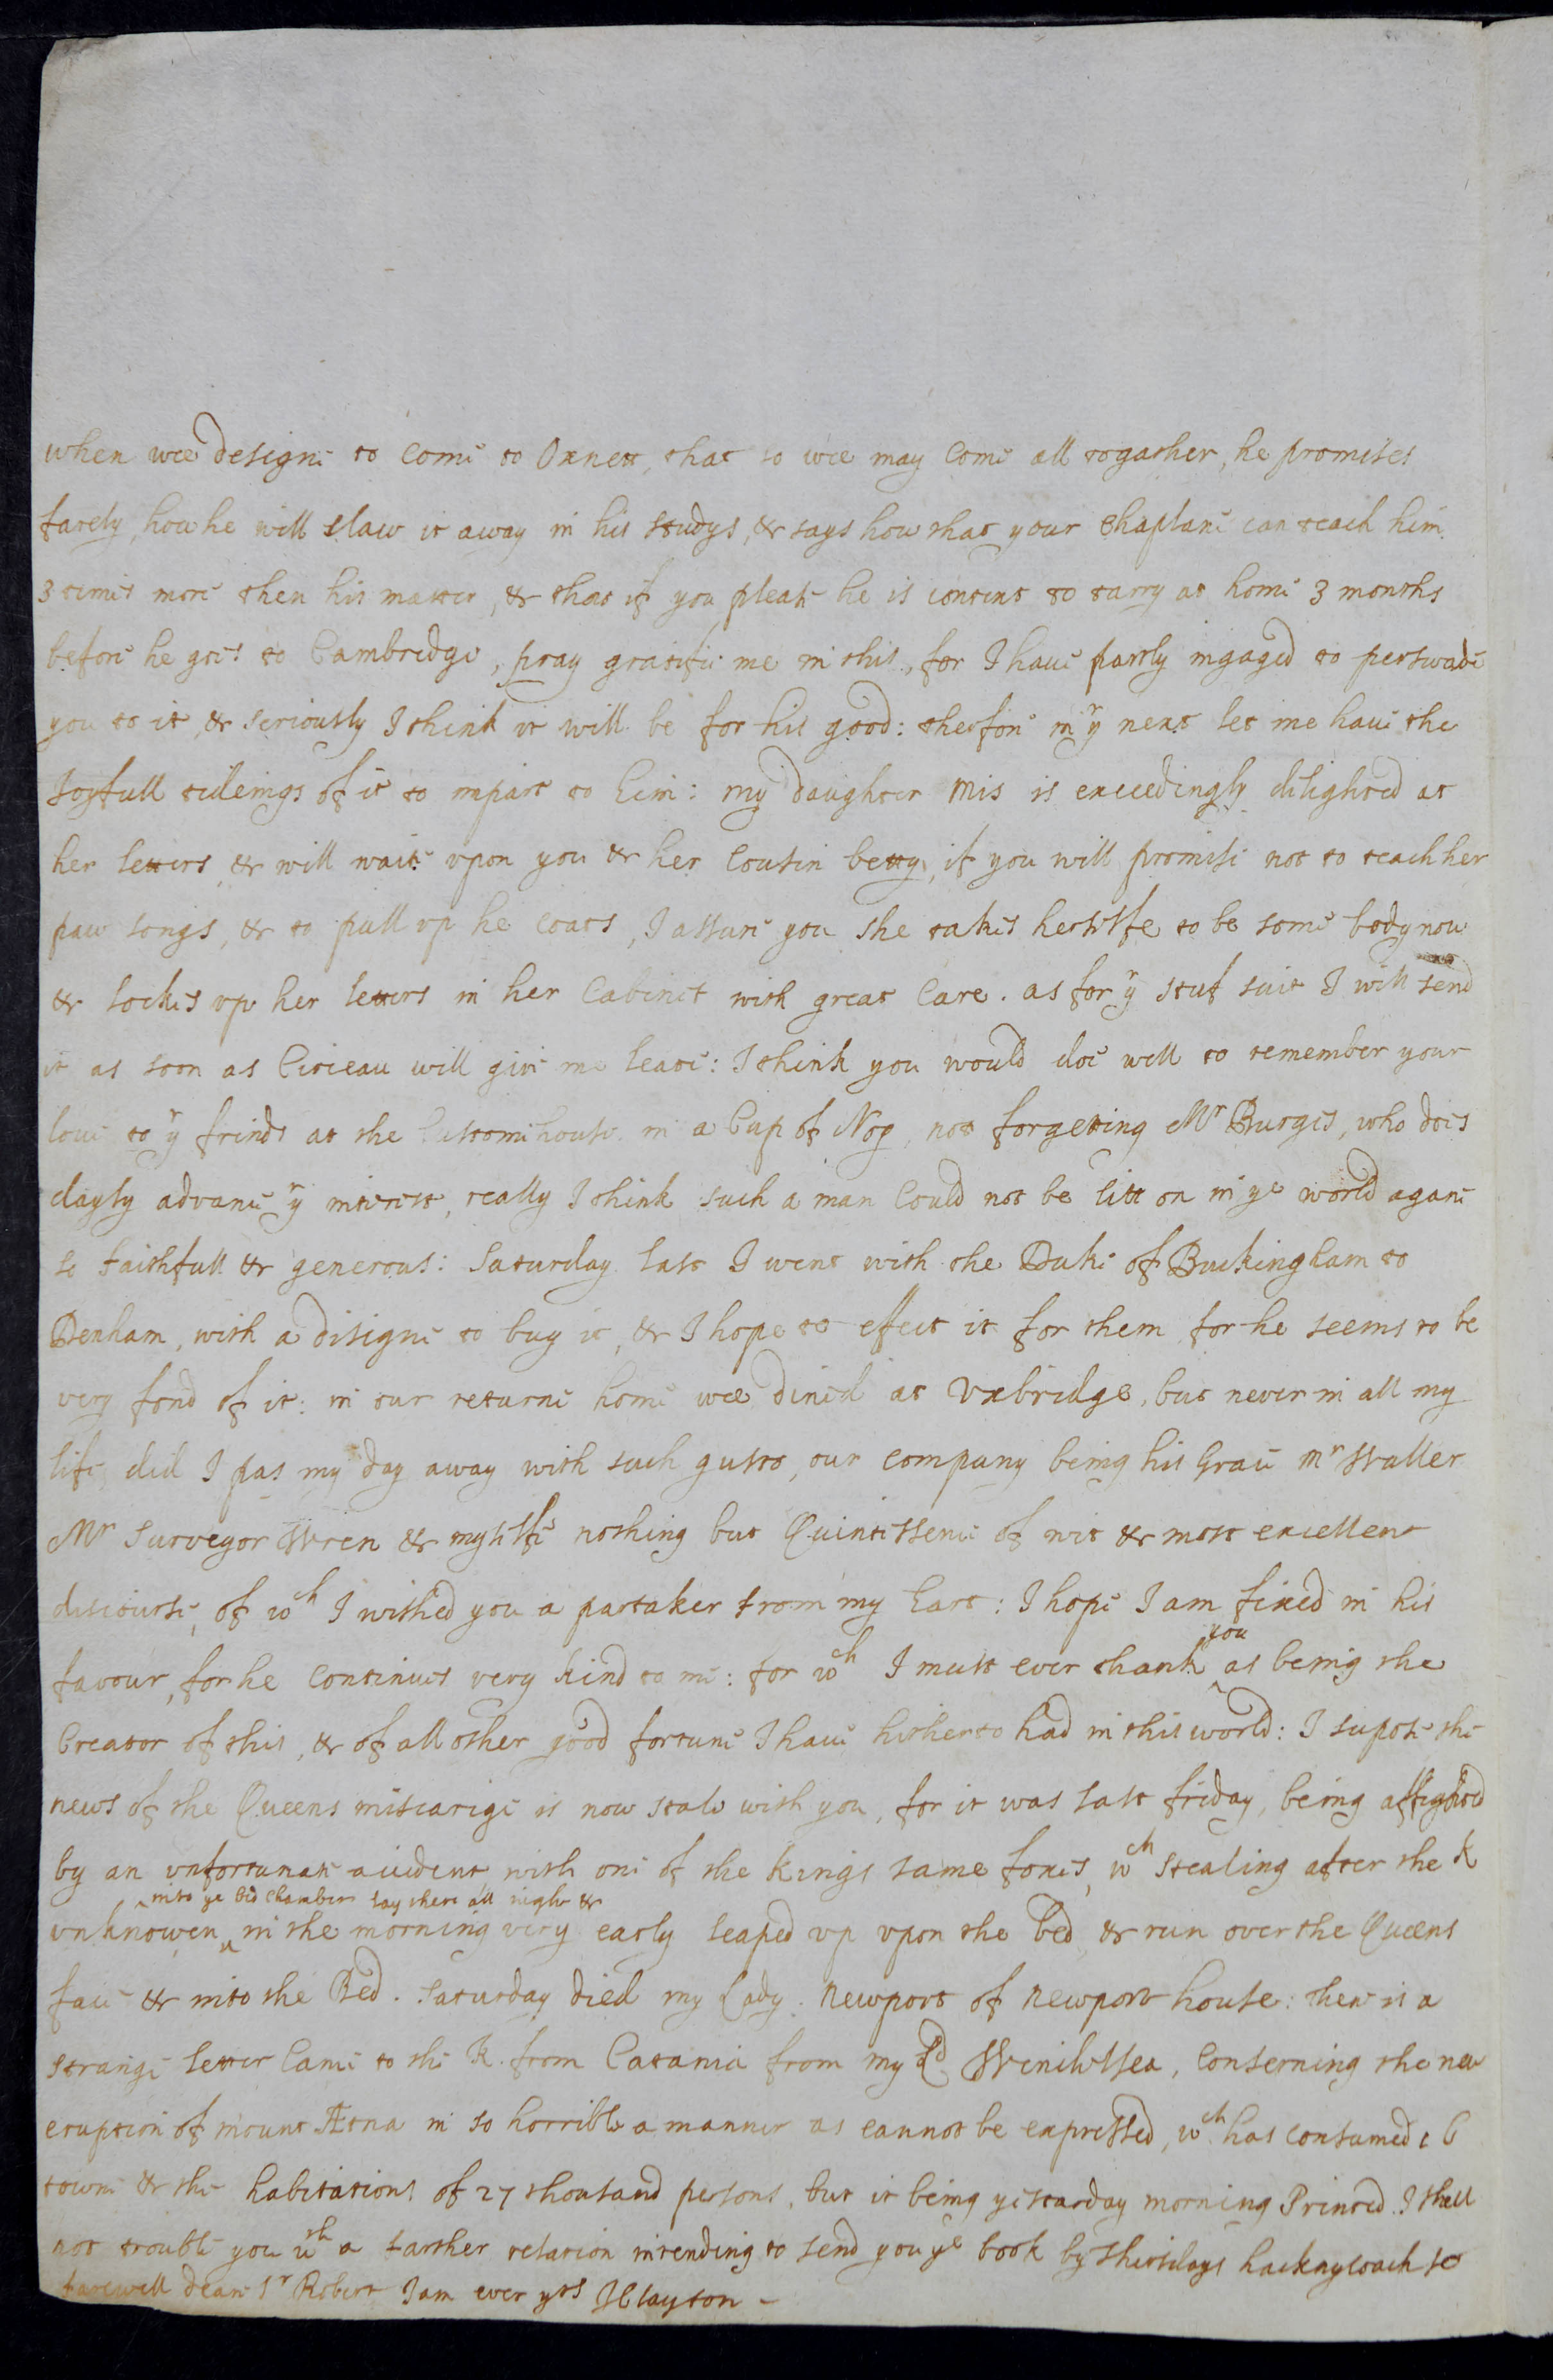 when wee designe to come to Oxnett, that so wee may come all togather, he promises
farely, how he will claw it away in his studys, & says how that your Chaplane can teach him
3 times more then his master, & that if you please he is content to tarry at home 3 months
before he goes to Cambredge, pray gratifie me in this, for I have partly ingaged to perswade
you to it, & seriously I think it will be for his good: therfore in yr next let me have the
Joyfull tideings of it to impart to him: my daughter Mis is exceedingly dilighted at
her letters, & will waite upon you & her Cousin betty, if you will promise not to teach her
paw songs, & to pull up he coats, I assure you she takes herselfe to be some body now
& lockes up her letters in her Cabinet with great Care. as for yr stuf suit I will send
it as soon as will give me leave: I think you would doe well to remember your
love to yr frinds at the Custome house in a Cup of Nog, not forgeting Mr Burges, who does
dayly advance yr interest, really I think such a man Could not be litt on in ye world agane
so faithfull & generous: Saturday last I went with the Duke of Buckingham to
Denham, with a disigne to buy it, & I hope to effect it for them for he seems to be
very fond of it: in our returne home wee dined at Uxbridge, but never in all my
life did I pas my day away with such gusto, our company being his Grace Mr Waller
Mr Surveyor Wren & myselfe nothing but Quintissence of wit & most excellent
discourse, of wch I wished you a partaker from my hart: I hope I am fixed in his
favour, for he Continues very kind to me: for wch I must ever thank ^you as being the
Creator of this, & of all other good fortune I have hitherto had in this world: I supose the
news of the Queens miscarige is now stale with you, for it was last friday, being affrighted
by an unfortunate accident with one of the Kings tame foxes, wch stealing after the K
unknowen ^into ye bed Chamber lay there all night & in the morning very early leaped up upon the bed & run over the Queens
face & into the Bed. Saturday died my Lady Newport of Newport house: there is a
strange letter Came to the K. from Catania from my Ld Winchelsea, Conserning the new
eruption of mount Ætna in so horrible a manner as cannot be expressed, wch has consumed 16
towns & the habitations of 27 thousand persons, but it being yestarday morning Printed I shall
not trouble you wth a farther relation intending to send you ye book by Thursdays hackny coach so
farewell deare Sr Robert I am ever yrs JClayton –